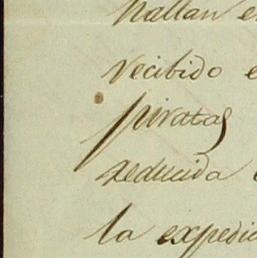 hallan e
recibido e
piratas
reducida
la expedic